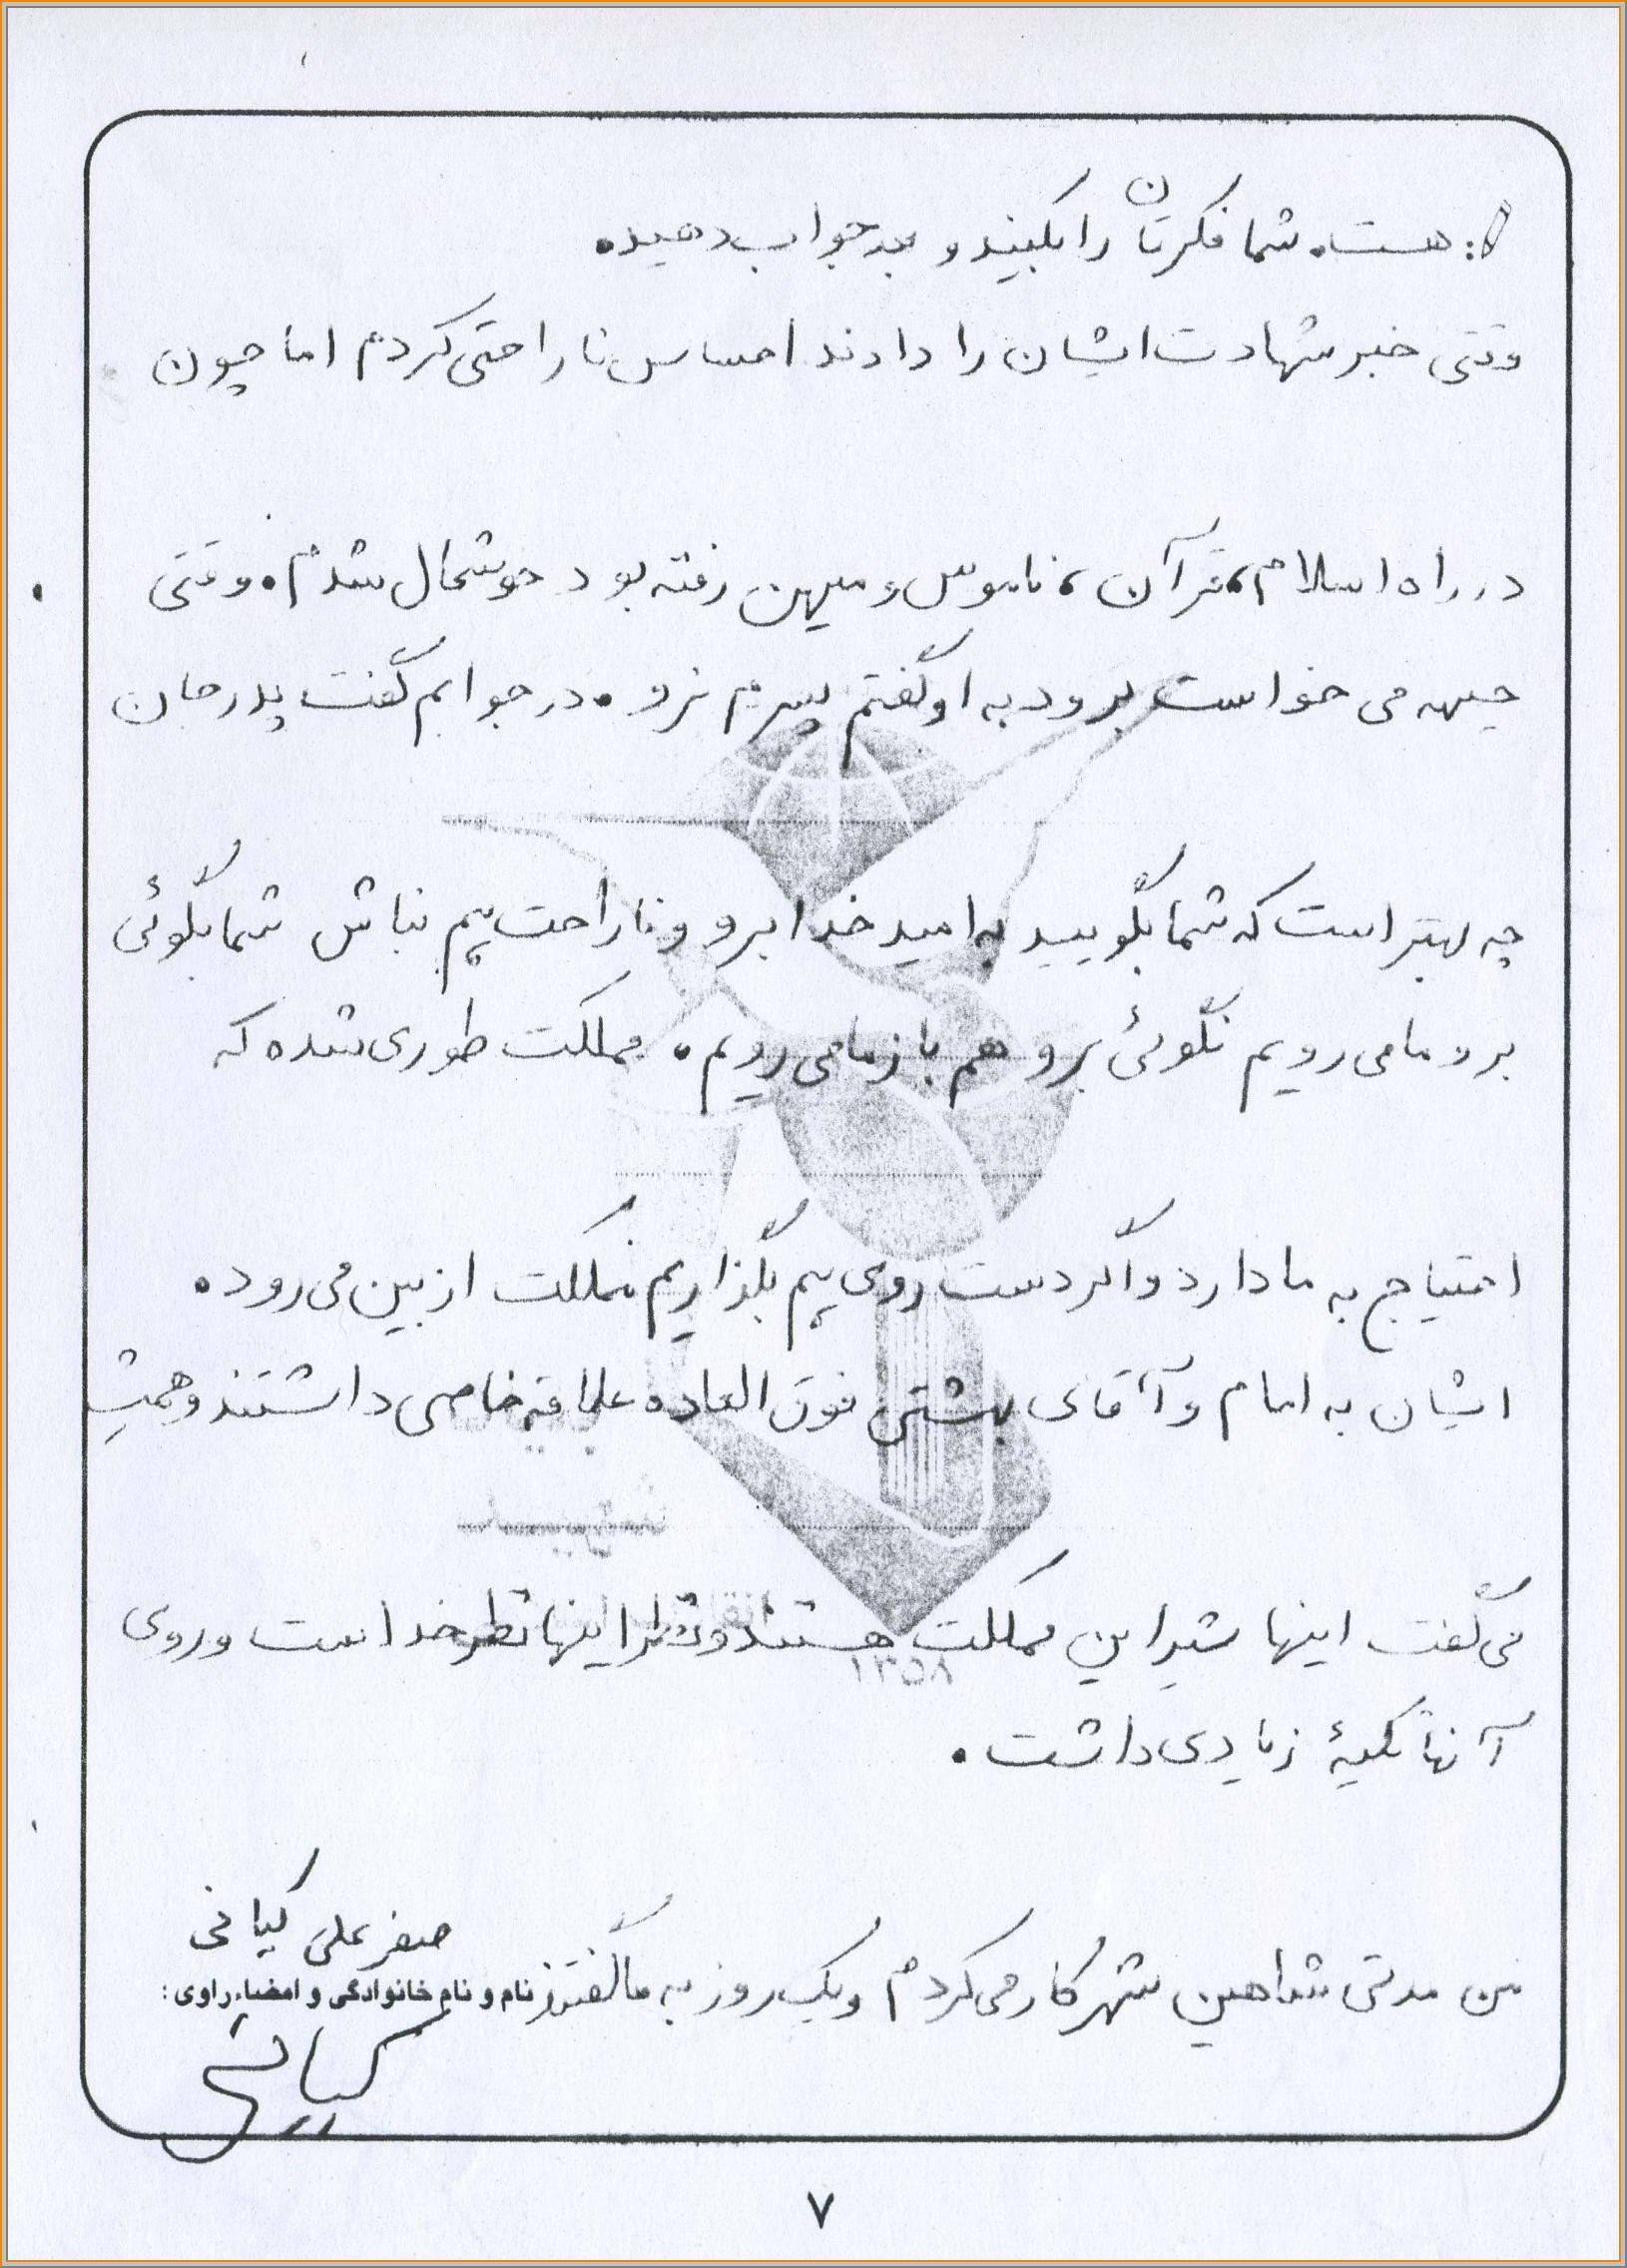 هست. شما فکرتان را بکنید و بعد جواب دهید.
وقتی خبر شهادت ایشان را دادند احساس ناراحتی کردم اما چون
در راه اسلام، قرآن، ناموس و میهن رفته بود خوشحال شدم. وقتی
جبهه می خواست برود به او گفتم پسرم نرو. در جوابم گفت پدر جان
چه بهتر است که شما بگویید به امید خدا برو و ناراحت هم نباش شما بگوئی
برو ما می رویم نگوئی برو هم باز ما می رویم. مملکت طوری شده که
احتیاج به ما دارد و اگر دست روی هم بگذاریم مملکت از بین می رود.
ایشان به امام و آقای بهشتی فوق العاده علاقه خاصی داشتند و همیشه
می گفت اینها شیر این مملکت هستند و نظر اینها نظر خداست و روی
آنها تکیهٔ زیادی داشت.
صفر علی کیانی
من مدتی شاهین شهر کار می کردم و یک روز به ما گفتند
نام و نام خانوادگی و امضاء راوی:
کیانی
شهید
۱۳۵۸
۷